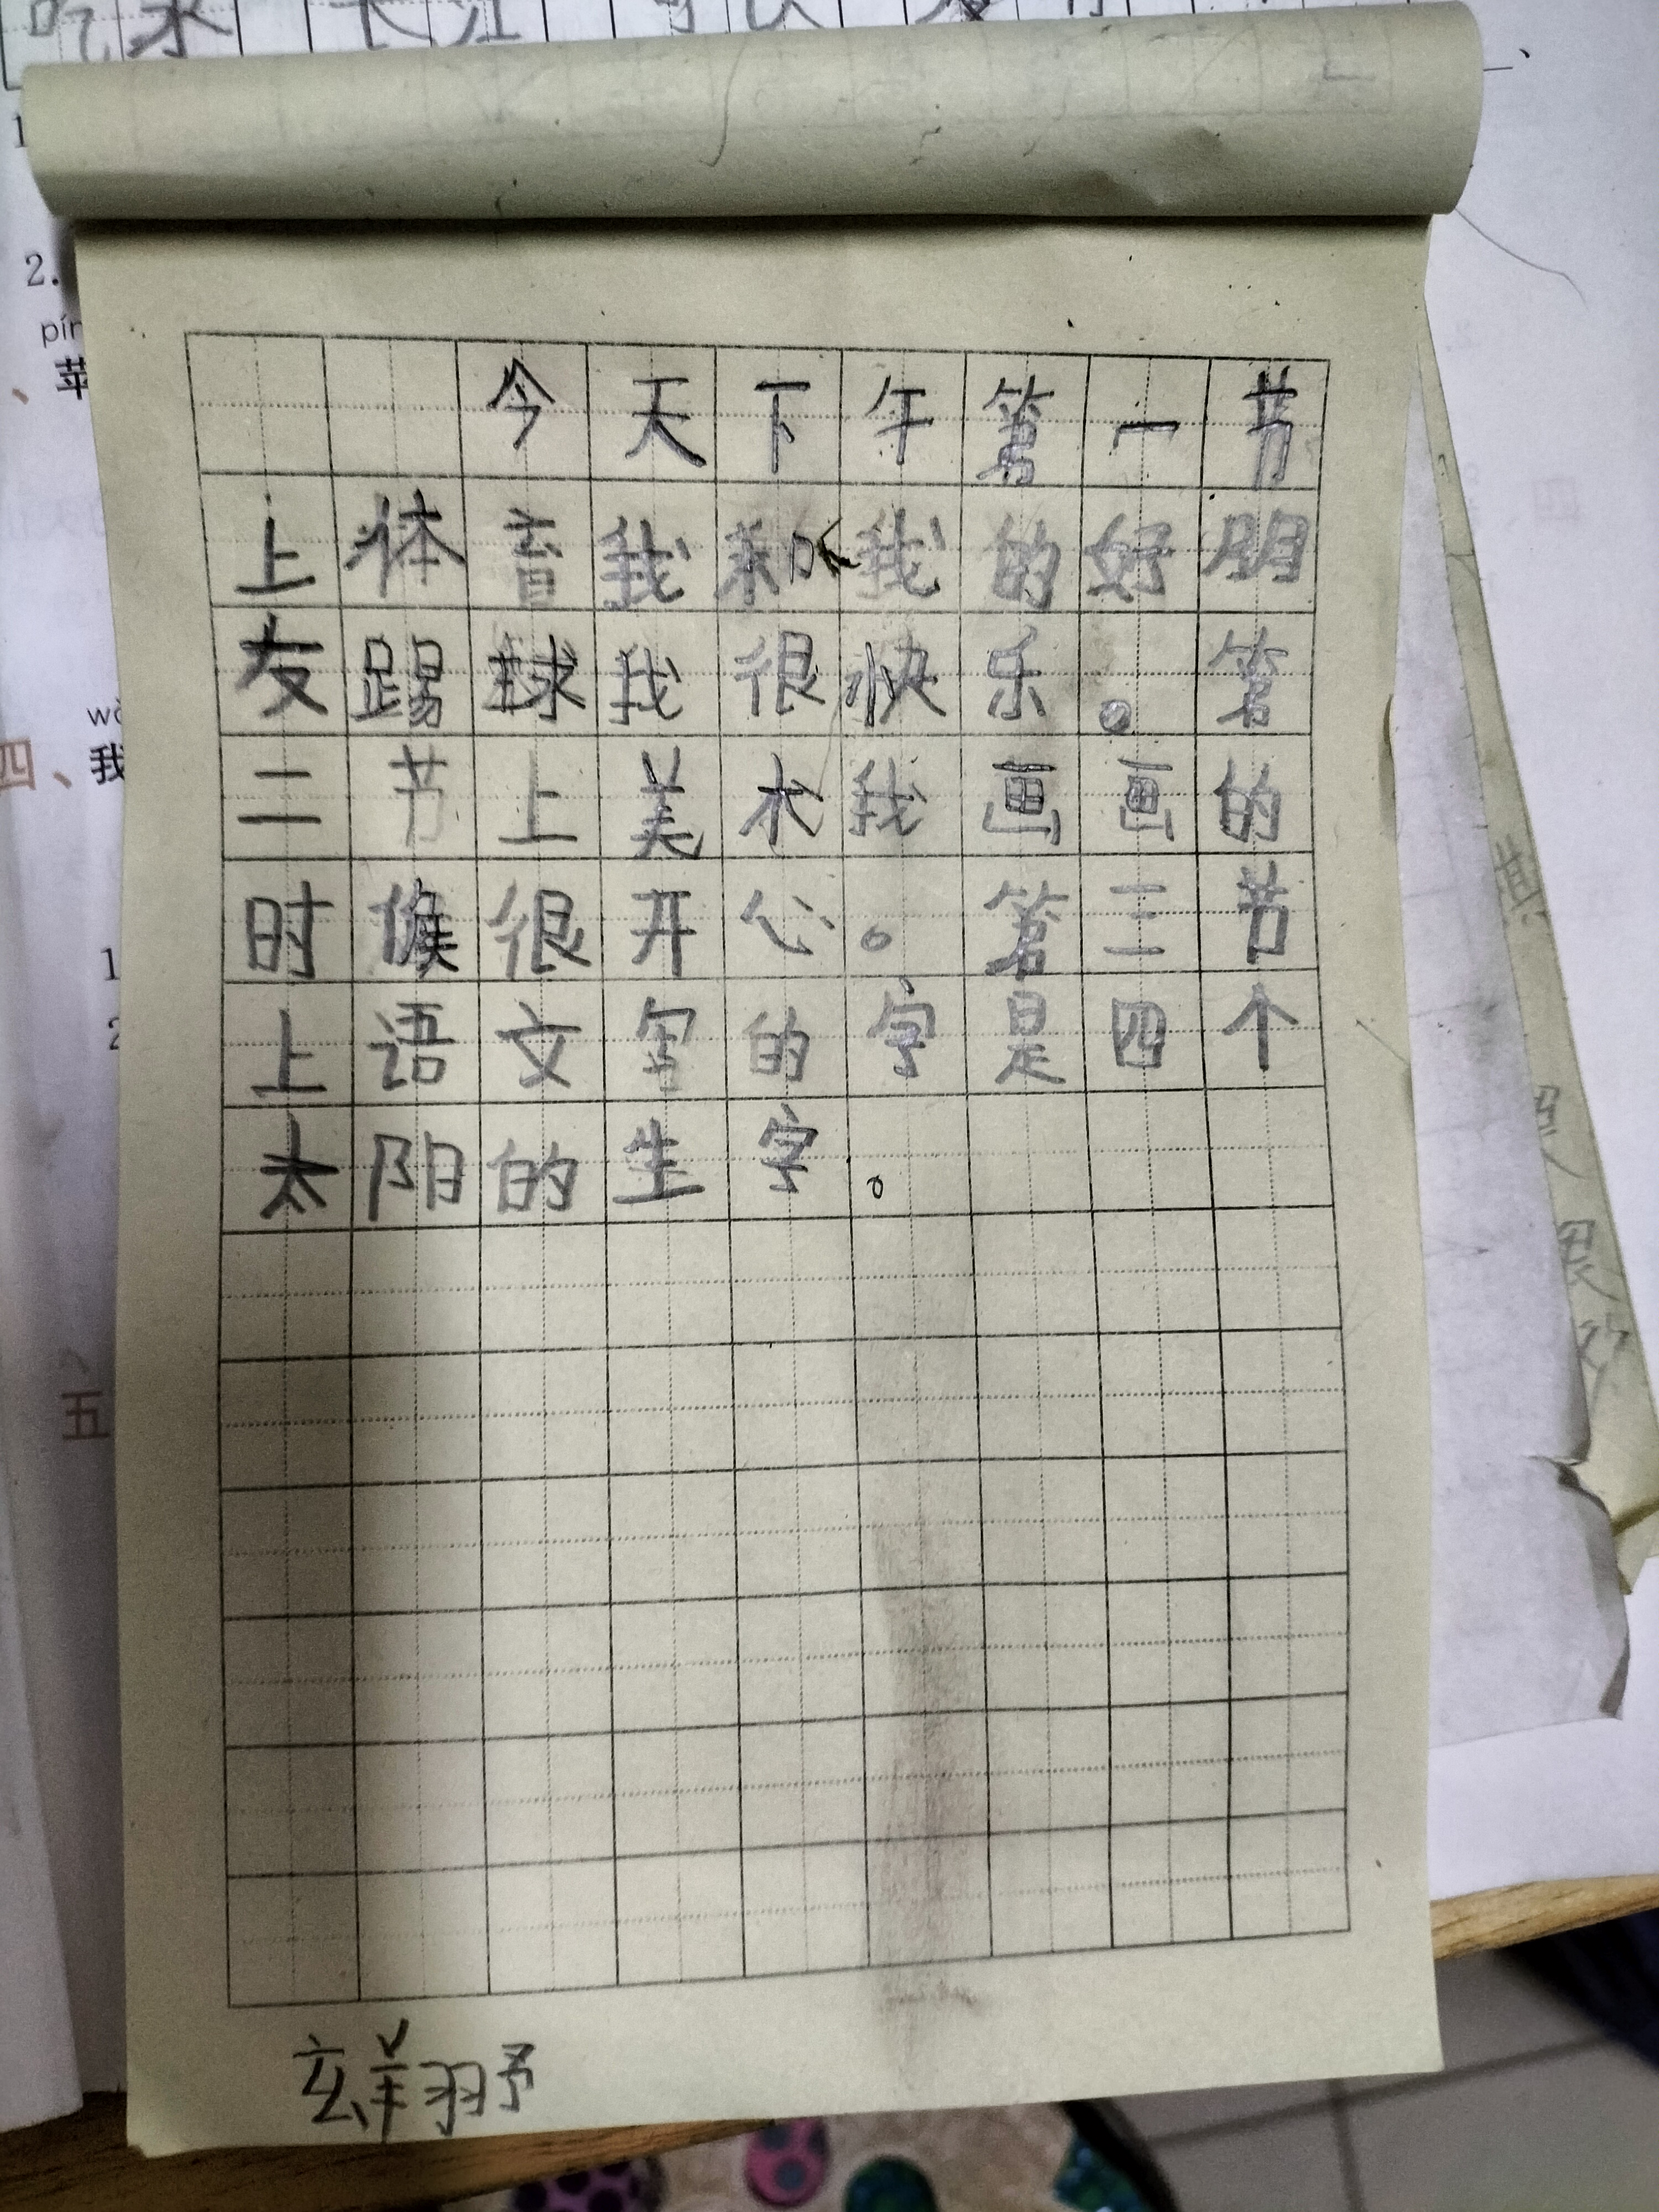 吃水
长江
2.
苹
wǒ
四、我
1
2
五
今天下午第一节
上体育我和我的好朋
友踢球我很快乐。第
二节上美术我画画的
时候很开心。第三节
上语文写的字是四个
太阳的生字。